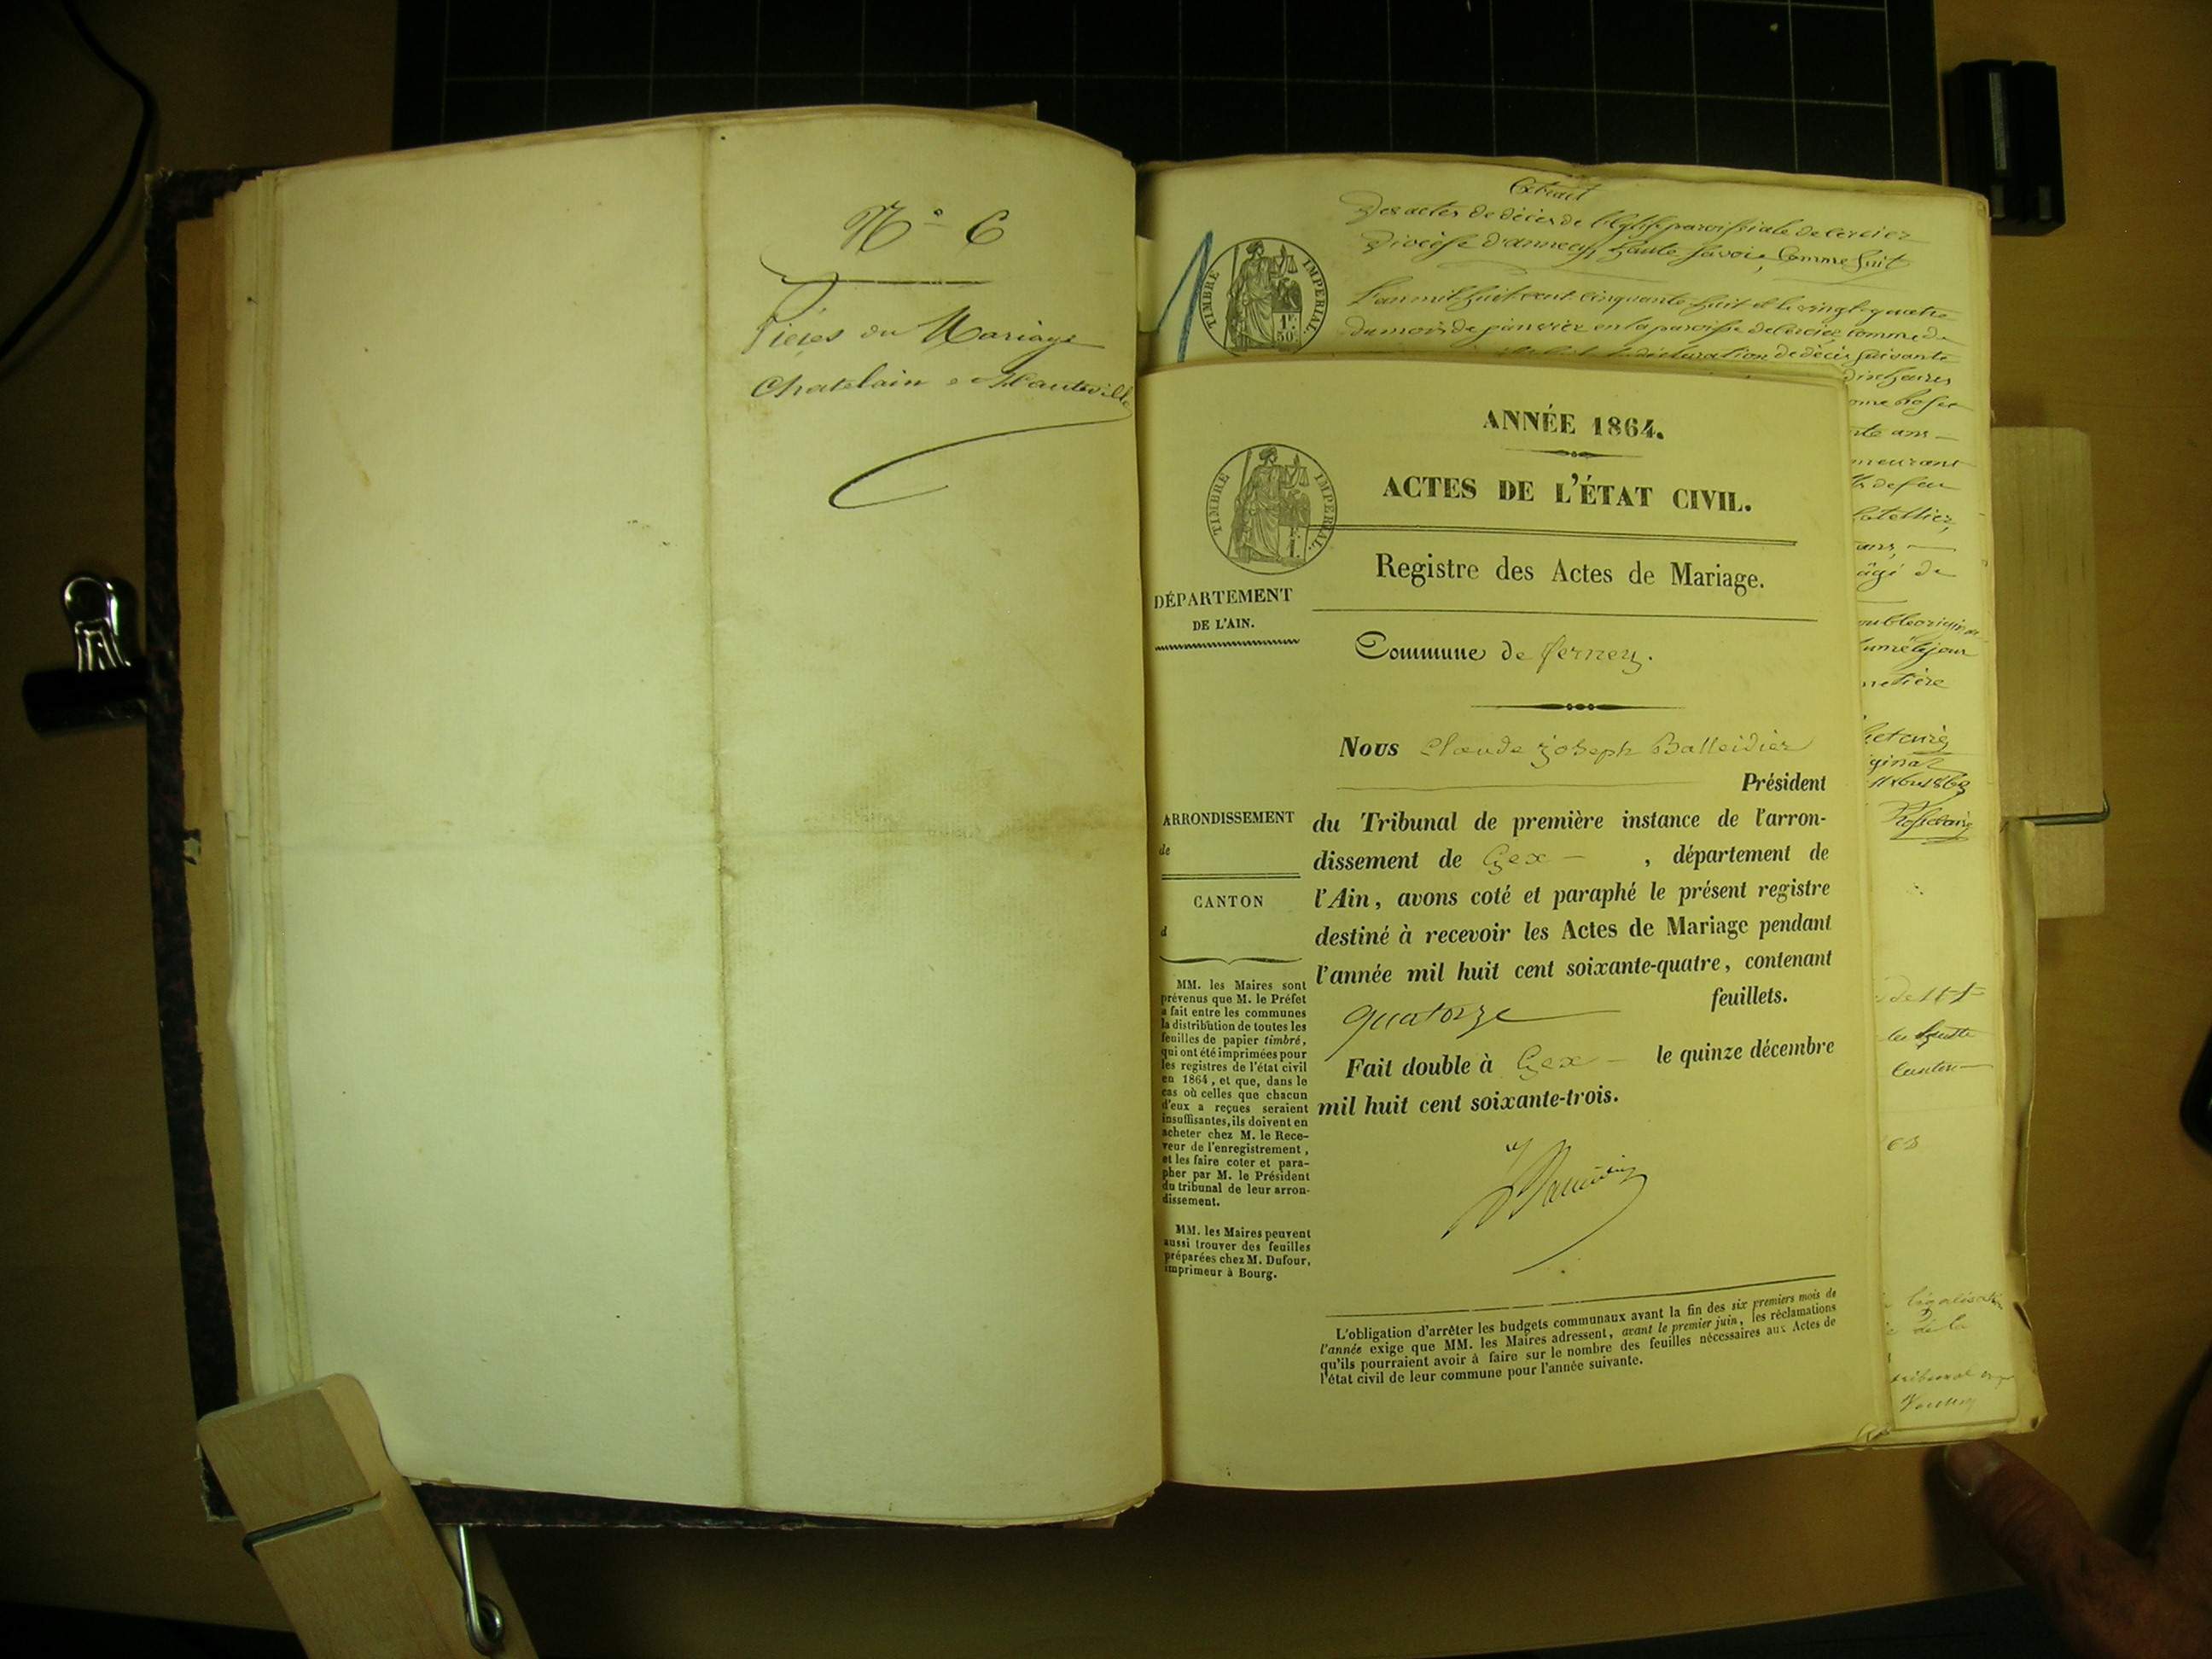 N° 6
Pièces du Mariage
Chatelain e Hauteville
Extrait
Des actes de décès de l'Eglise paroissiale de Cercier
Diocèse d'annecy, haute Savoie, Comme Suit
L'an mil huit cent cinquante huit et le vingt quatre
du mois de janvier en la paroisse de Cercier Comme de
déclaration de décès suivante
dix heures
ans
demeurant
de feu
ans,
âgé de
TIMBRE IMPERIAL.
1F.
50C
ANNÉE 1864.
ACTES DE L'ÉTAT CIVIL.
TIMBRE IMPERIAL.
1F.
Registre des Actes de Mariage.
DÉPARTEMENT
DE L'AIN.
Commune de Ferney.
Nous Claude Joseph Balleidier
Président
ARRONDISSEMENT
de
CANTON
d
du Tribunal de première instance de l'arron-
dissement de Gex , département de
l'Ain, avons coté et paraphé le présent registre
destiné à recevoir les Actes de Mariage pendant
l'année mil huit cent soixante-quatre, contenant
quatorze feuillets.
Fait double à Gex le quinze décembre
mil huit cent soixante-trois.
MM. les Maires sont
prévenus que M. le Préfet
a fait entre les communes
la distribution de toutes les
feuilles de papier timbré,
qui ont été imprimées pour
les registres de l'état civil
en 1864, et que, dans le
cas où celles que chacun
d'eux a reçues seraient
insuffisantes, ils doivent en
acheter chez M. le Rece-
veur de l'enregistrement,
et les faire coter et para-
pher par M. le Président
du tribunal de leur arron-
dissement.
MM. les Maires peuvent
aussi trouver des feuilles
préparées chez M. Dufour,
imprimeur à Bourg.
L'obligation d'arrêter les budgets communaux avant la fin des six premiers mois de
l'année exige que MM. les Maires adressent, avant le premier juin, les réclamations
qu'ils pourraient avoir à faire sur le nombre des feuilles nécessaires aux Actes de
l'état civil de leur commune pour l'année suivante.